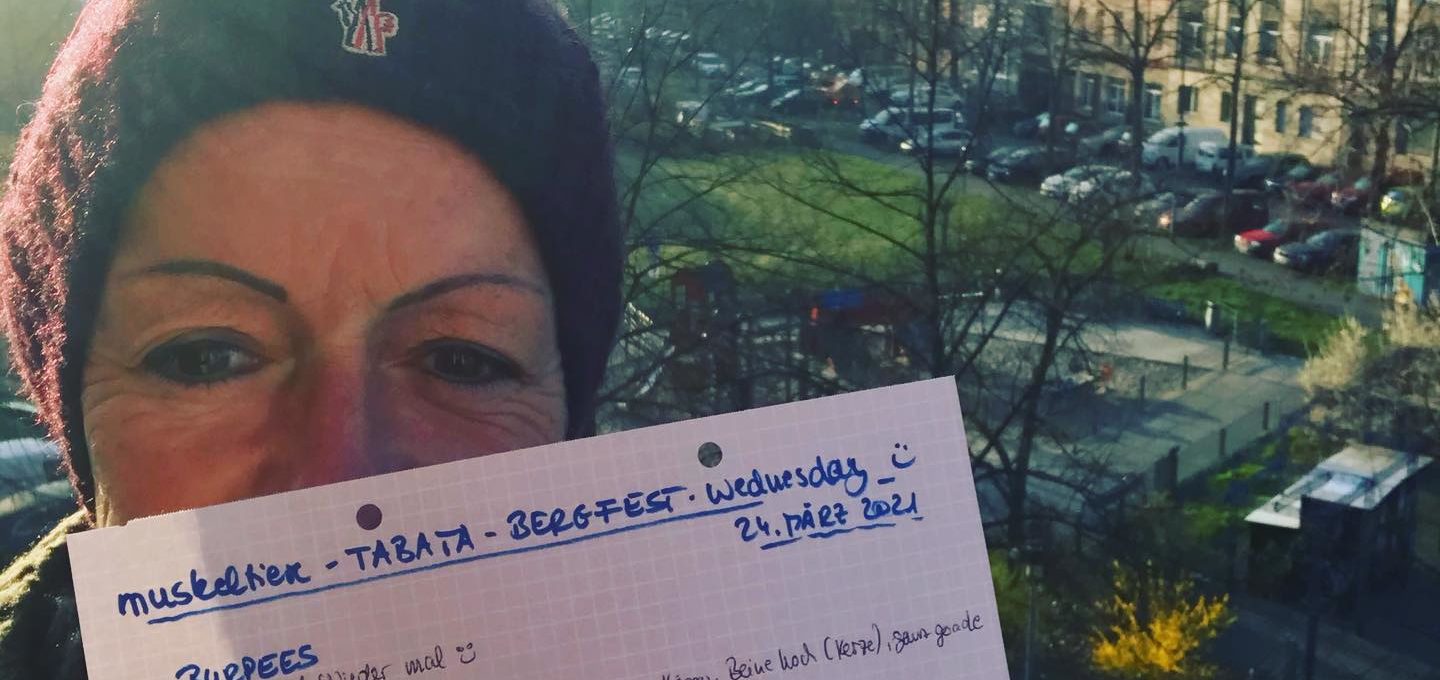 muskeltier - TABATA - BERGFEST - Wednesday
24. MÄRZ 2021
BURPEES
wieder mal
Beine hoch (Kerze), ganz gerade